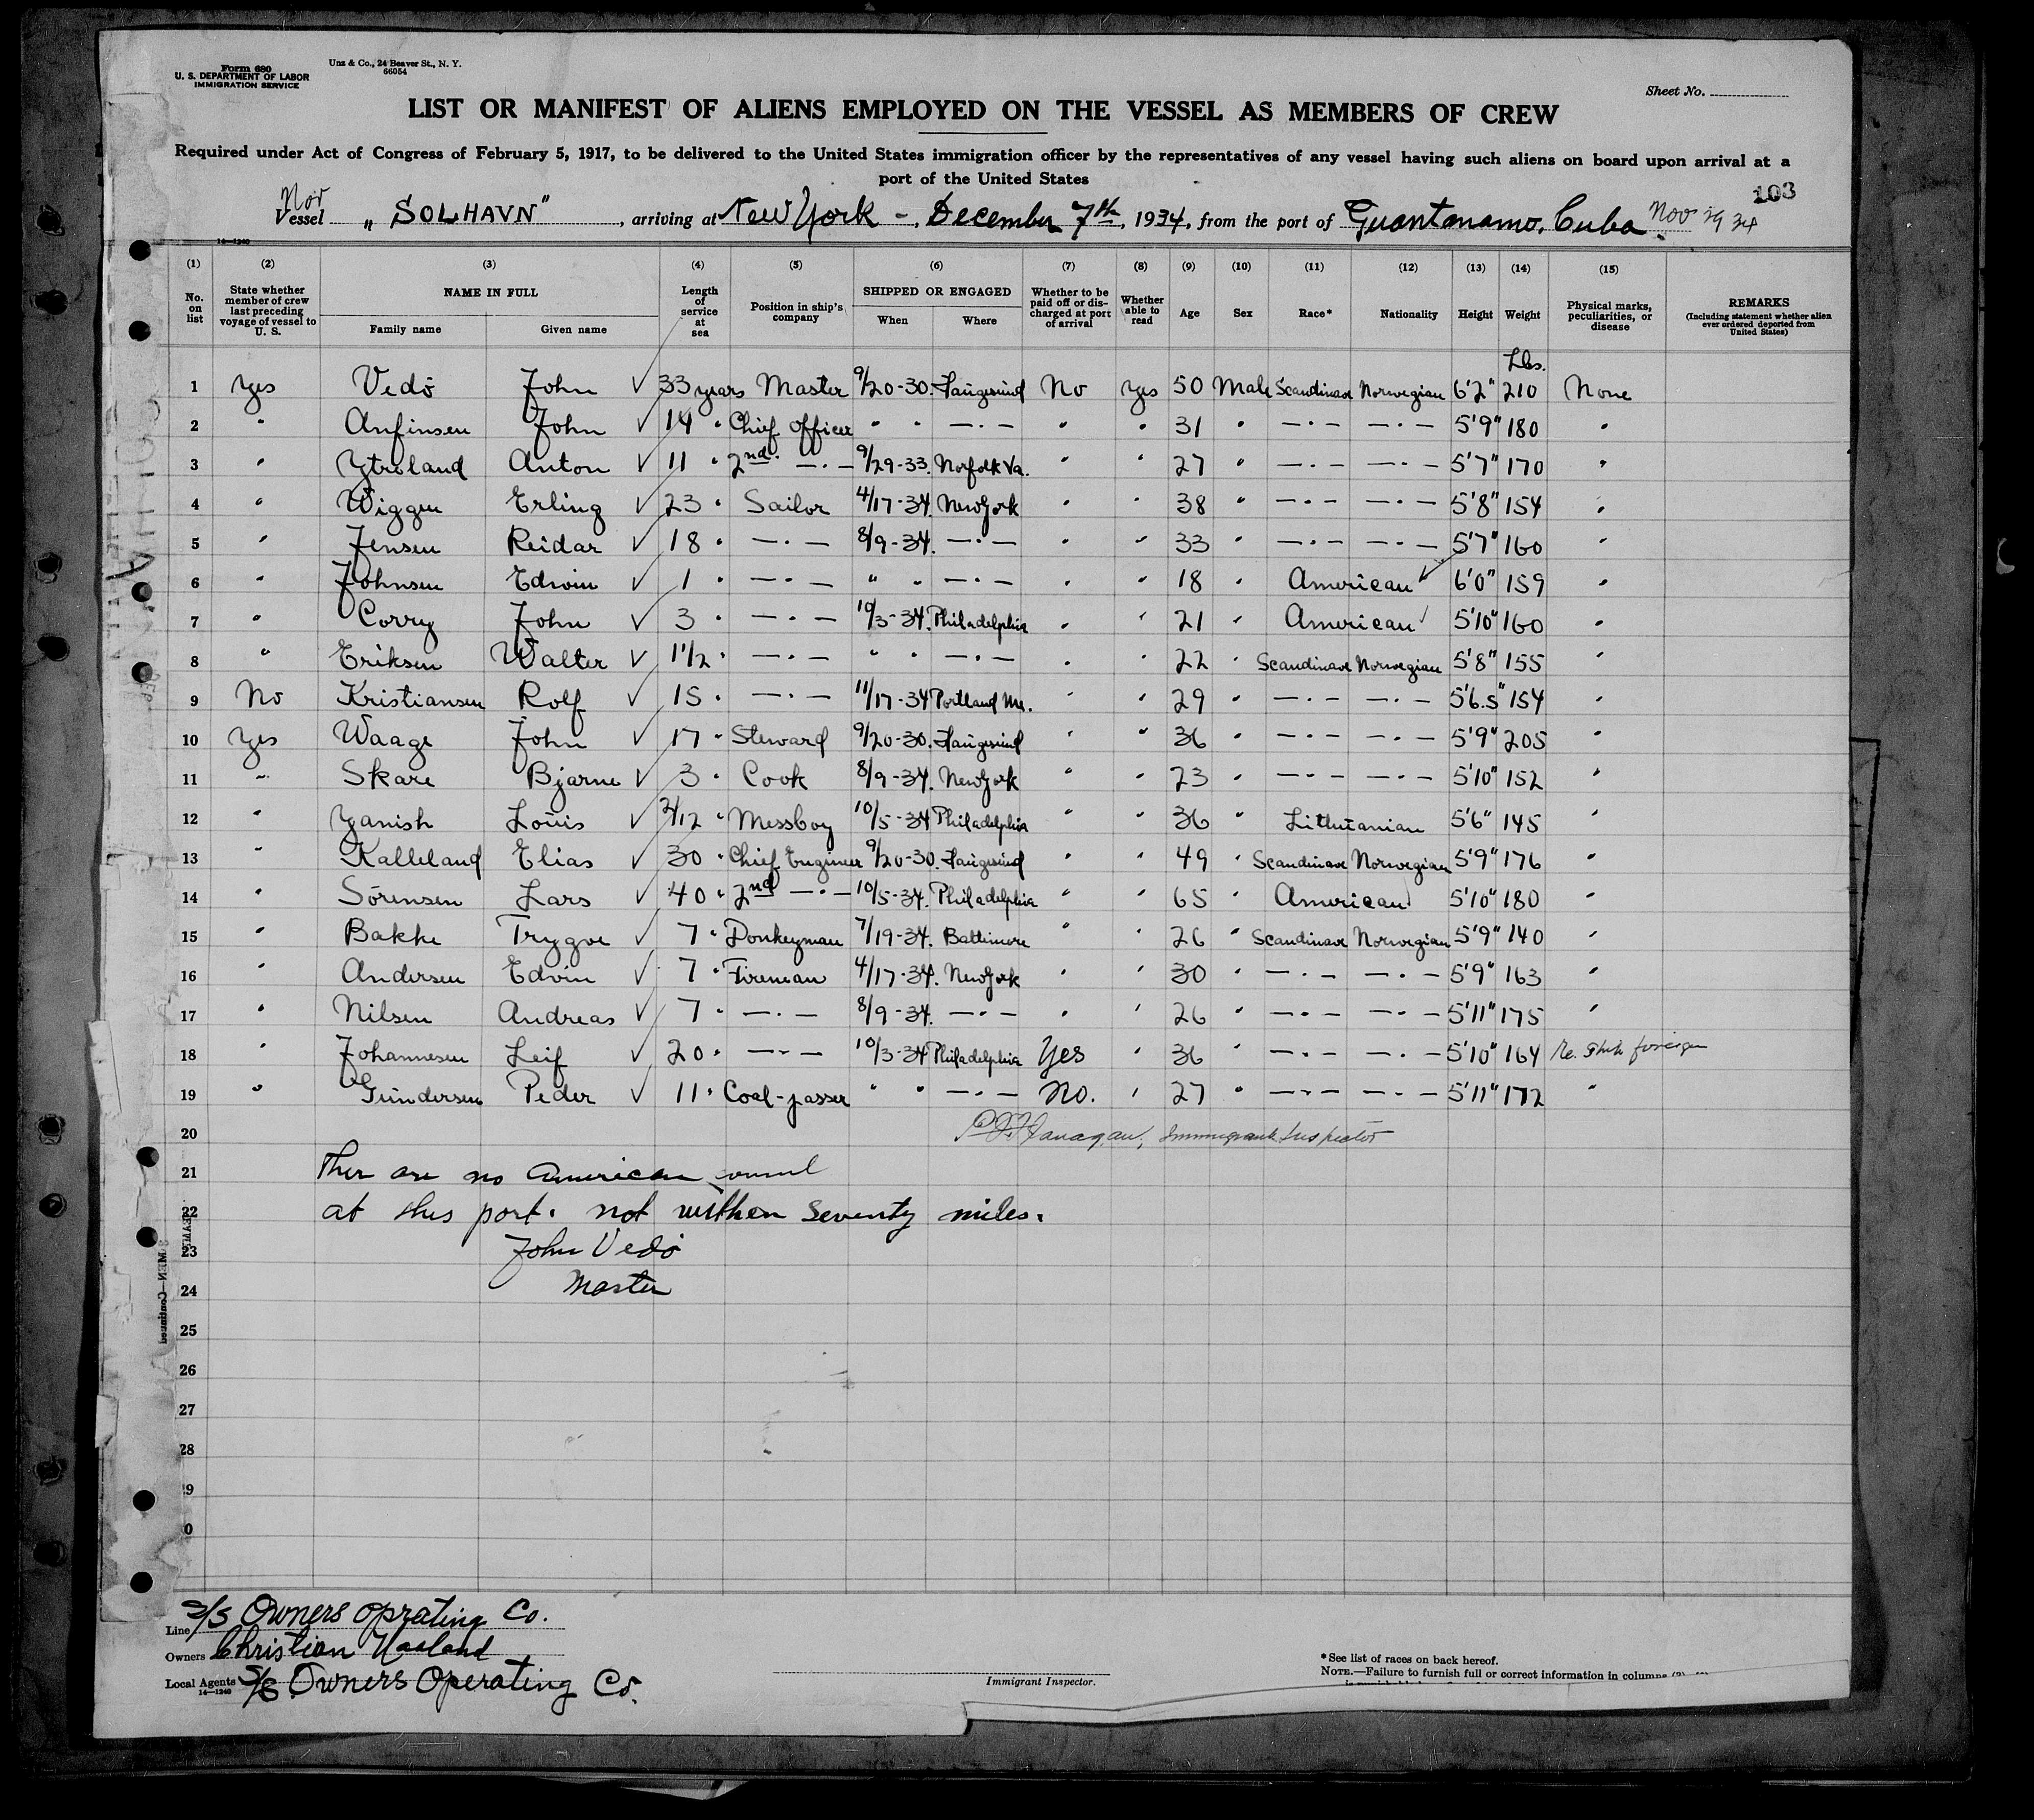 Form 680
U. S. DEPARTMENT OF LABOR
IMMIGRATION SERVICE
Unz & Co., 24 Beaver St., N. Y.
66054
Sheet No.
LIST OR MANIFEST OF ALIENS EMPLOYED ON THE VESSEL AS MEMBERS OF CREW
Required under Act of Congress of February 5, 1917, to be delivered to the United States immigration officer by the representatives of any vessel having such aliens on board upon arrival at a
port of the United States
103
Nor
Vessel „ SOLHAVN" , arriving at New York - , December 7th, 1934, from the port of Guantanamo, Cuba. Nov 29 34
14—1240
(1) (2) (3) (4) (5) (6) (7) (8) (9) (10) (11) (12) (13) (14) (15)
No. on list State whether member of crew last preceding voyage of vessel to U. S. NAME IN FULL Family name Given name Length of service at sea Position in ship's company SHIPPED OR ENGAGED When Where Whether to be paid off or discharged at port of arrival Whether able to read Age Sex Race* Nationality Height Weight Physical marks, peculiarities, or disease REMARKS (Including statement whether alien ever ordered deported from United States)
Lbs.
1 Yes Vedö John ✓ 33 years Master 9/20-30. Haugesund No Yes 50 Male Scandinav Norwegian 6'2" 210 None
2 " Anfinsen John ✓ 14 " Chief officer " " —·— " " 31 " —·— —·— 5'9" 180 "
3 " Ytreland Anton ✓ 11 " 2nd —·— 9/29-33. Norfolk Va. " " 27 " —·— —·— 5'7" 170 "
4 " Wiggen Erling ✓ 23 " Sailor 4/17-34. New York " " 38 " —·— —·— 5'8" 154 "
5 " Jensen Reidar ✓ 18 " —·— 8/9-34. —·— " " 33 " —·— —·— 5'7" 160 "
6 " Johnsen Edwin ✓ 1 " —·— " " —·— " " 18 " American ✓ 6'0" 159 "
7 " Corry John ✓ 3 " —·— 10/3-34. Philadelphia " " 21 " American ✓ 5'10" 160 "
8 " Eriksen Walter ✓ 1 1/2 " —·— " " —·— " " 22 " Scandinav Norwegian 5'8" 155 "
9 No Kristiansen Rolf ✓ 15 " —·— 11/17-34 Portland Me. " " 29 " —·— —·— 5'6.5" 154 "
10 Yes Waage John ✓ 17 " Steward 9/20-30. Haugesund " " 36 " —·— —·— 5'9" 205 "
11 " Skare Bjarne ✓ 3 " Cook 8/9-34. New York " " 23 " —·— —·— 5'10" 152 "
12 " Yanish Louis ✓ 2/12 " Messboy 10/5-34 Philadelphia " " 36 " Lithuanian 5'6" 145 "
13 " Kalleland Elias ✓ 30 " Chief Engineer 9/20-30. Haugesund " " 49 " Scandinav Norwegian 5'9" 176 "
14 " Sörensen Lars ✓ 40 " 2nd —·— 10/5-34. Philadelphia " " 65 " American 5'10" 180 "
15 " Bakke Trygve ✓ 7 " Donkeyman 7/19-34. Baltimore " " 26 " Scandinav Norwegian 5'9" 140 "
16 " Andersen Edvin ✓ 7 " Fireman 4/17-34. New York " " 30 " —·— —·— 5'9" 163 "
17 " Nilsen Andreas ✓ 7 " —·— 8/9-34. —·— " " 26 " —·— —·— 5'11" 175 "
18 " Johannesen Leif ✓ 20 " —·— 10/3-34 Philadelphia Yes " 36 " —·— —·— 5'10" 164 Re. foreign
19 " Gundersen Peder ✓ 11 " Coal-passer " " —·— No. " 27 " —·— —·— 5'11" 172 "
20 Flanagan, Immigrant Inspector
21 Ther are no American consul
22 at this port. not withen seventy miles.
23 John Vedö
24 Master
25
26
27
28
Line S/S Owners Oprating Co.
Owners Christian Haaland
Local Agents S/S Owners Operating Co.
14—1240
Immigrant Inspector.
*See list of races on back hereof.
NOTE.—Failure to furnish full or correct information in columns